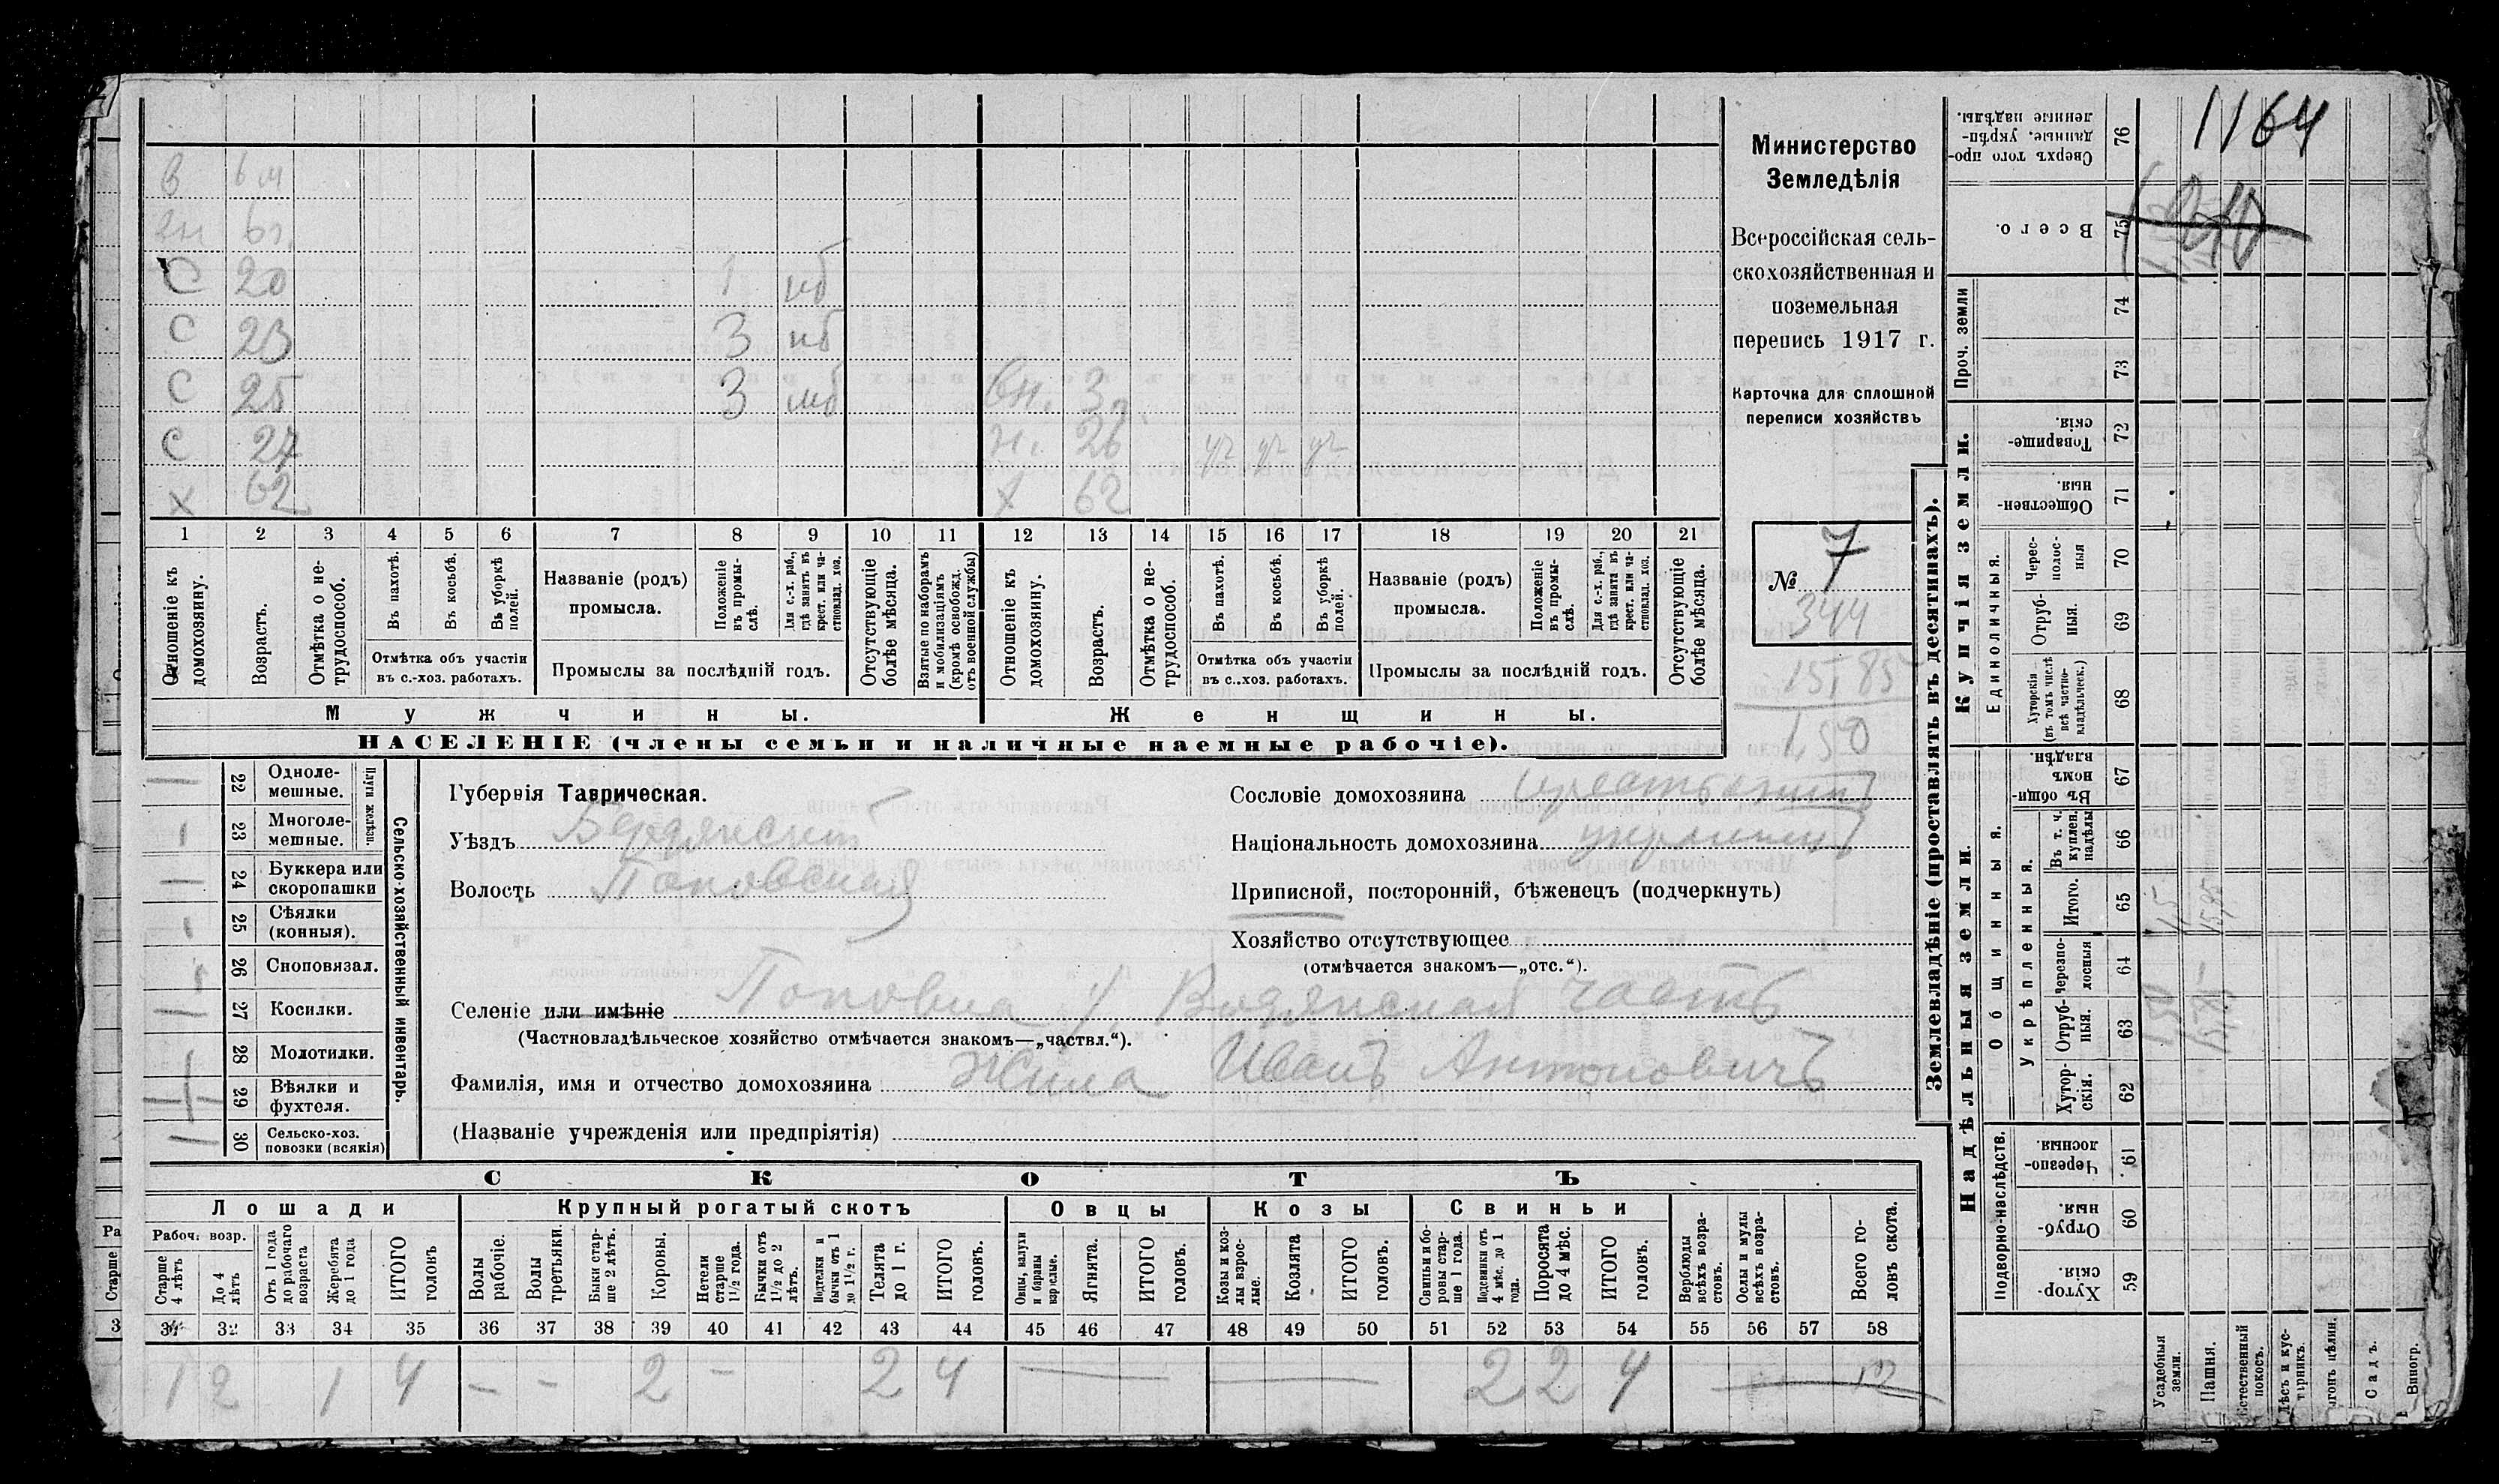 1164
Министерство
Земледѣлія
Всероссійская сель-
скохозяйственная и
поземельная
перепись 1917 г.
Карточка для сплошной
переписи хозяйствъ
№ 7
344
15,85
1,50
С 20 1
С 23 3
С 25 3 вн. 3
С 27 н. 26
Х 62 Х 62
1 2 3 4 5 6 7 8 9 10 11 12 13 14 15 16 17 18 19 20 21
Отношеніе къ домохозяину.
Возрастъ.
Отмѣтка о не-
трудоспособ.
Въ пахотѣ.
Въ косьбѣ.
Въ уборкѣ
полей.
Отмѣтка объ участіи
въ с.-хоз. работахъ.
Названіе (родъ)
промысла.
Положеніе
въ промы-
слѣ.
Для с.-х. раб.,
гдѣ занятъ въ
крест. или ча-
стновлад. хоз.
Промыслы за послѣдній годъ.
Отсутствующіе
болѣе мѣсяца.
Взятые по наборамъ
и мобилизаціямъ
(кромѣ освобожд.
отъ военной службы)
Отношеніе къ
домохозяину.
Возрастъ.
Отмѣтка о не-
трудоспособ.
Въ пахотѣ.
Въ косьбѣ.
Въ уборкѣ
полей.
Отмѣтка объ участіи
въ с.-хоз. работахъ.
Названіе (родъ)
промысла.
Положеніе
въ промы-
слѣ.
Для с.-х. раб.,
гдѣ занята въ
крест. или ча-
стновлад. хоз.
Промыслы за послѣдній годъ.
Отсутствующіе
болѣе мѣсяца.
Мужчины.
Женщины.
НАСЕЛЕНІЕ (члены семьи и наличные наемные рабочіе).
Сельско-хозяйственный инвентарь.
Плуги желѣзн.
22 Одноле-
мешные.
23 Многоле-
мешные.
24 Буккера или
скоропашки
25 Сѣялки
(конныя).
26 Сноповязал.
27 Косилки.
28 Молотилки.
29 Вѣялки и
фухтеля.
30 Сельско-хоз.
повозки (всякія)
Губернія Таврическая.
Уѣздъ Бердянскій
Волость Поповская
Селеніе или имѣніе Поповка 1/. Водянская часть
(Частновладѣльческое хозяйство отмѣчается знакомъ—„частвл.“).
Фамилія, имя и отчество домохозяина Жила Иванъ Антоновичъ
(Названіе учрежденія или предпріятія)
Сословіе домохозяина крестьянинъ
Національность домохозяина украинецъ
Приписной, посторонній, бѣженецъ (подчеркнуть)
Хозяйство отсутствующее
(отмѣчается знакомъ—„отс.“).
СКОТЪ
Лошади
Крупный рогатый скотъ
Овцы
Козы
Свиньи
Рабоч. возр.
Старше
4 лѣтъ
До 4
лѣтъ
Отъ 1 года
до рабочаго
возраста
Жеребята
до 1 года
ИТОГО
головъ
Волы
рабочіе.
Волы
третьяки.
Быки стар-
ше 2 лѣтъ.
Коровы.
Нетели
старше
1½ года.
Бычки отъ
1½ до 2
лѣтъ.
Подтелки и
бычки отъ 1
до 1½ г.
Телята
до 1 г.
ИТОГО
головъ.
Овцы, валухи
и бараны
взрослые.
Ягнята.
ИТОГО
головъ.
Козы и коз-
лы взрос-
лые.
Козлята
ИТОГО
головъ.
Свиньи и бо-
ровы стар-
ше 1 года.
Подсвинки отъ
4 мѣс. до 1
года.
Поросята
до 4 мѣс.
ИТОГО
головъ.
Верблюды
всѣхъ возра-
стовъ.
Ослы и мулы
всѣхъ возра-
стовъ.
Всего го-
ловъ скота.
31 32 33 34 35 36 37 38 39 40 41 42 43 44 45 46 47 48 49 50 51 52 53 54 55 56 57 58
1 2 1 4 – – 2 – 2 4 — — 2 2 4 — 12
Землевладѣніе (проставлять въ десятинахъ).
Купчія земли.
Надѣльныя земли.
Сверхъ того про-
данные, укрѣп-
ленные надѣлы.
76
Всего.
75
Проч. земли
74
73
Товарище-
скія
72
Обществен-
ныя.
71
Единоличныя.
Черес-
полос-
ныя
70
Отруб-
ныя.
69
Хуторскія
(въ томъ числѣ
всѣ частно-
владѣльческ.)
68
Въ общи-
номъ
владѣн.
67
Общинныя.
Укрѣпленныя.
Въ т. ч.
куплен.
надѣлы
66
Итого.
65
1,5
15,85
Черезпо-
лосныя
64
Отруб-
ныя.
63
1,50
15,85
Хутор-
скія.
62
Подворно-наслѣдств.
Черезпо-
лосныя.
61
Отруб-
ныя.
60
Хутор-
скія.
59
Усадебныя
земли.
Пашня.
Естественный
покосъ.
Лѣсъ и кус-
тарникъ.
Садъ.
Виногр.